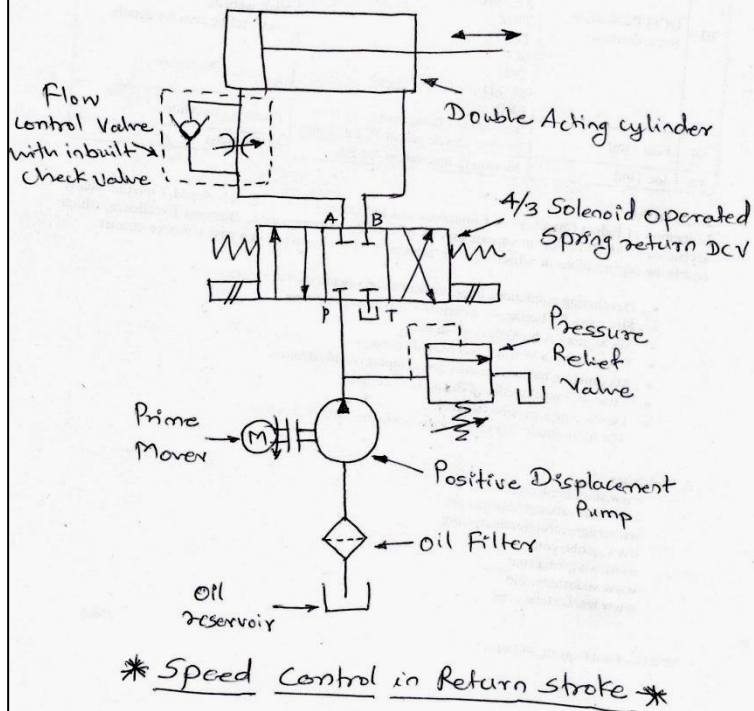 Flow
control Valve
with inbuilt
Check valve
Double Acting cylinder
A B
4/3 Solenoid Operated
Spring return DCV
P T
Pressure
Relief
Valve
Prime
Mover
M
Positive Displacement
Pump
Oil Filter
Oil
reservoir
* Speed Control in Return stroke *